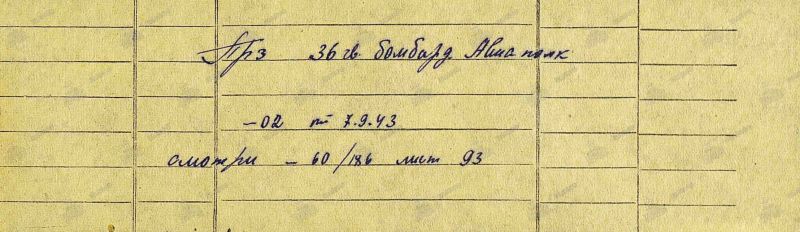 Прз 36 гв. бомбард Авиаполк
-02 от 7.9.43
смотри - 60/186 лист 93